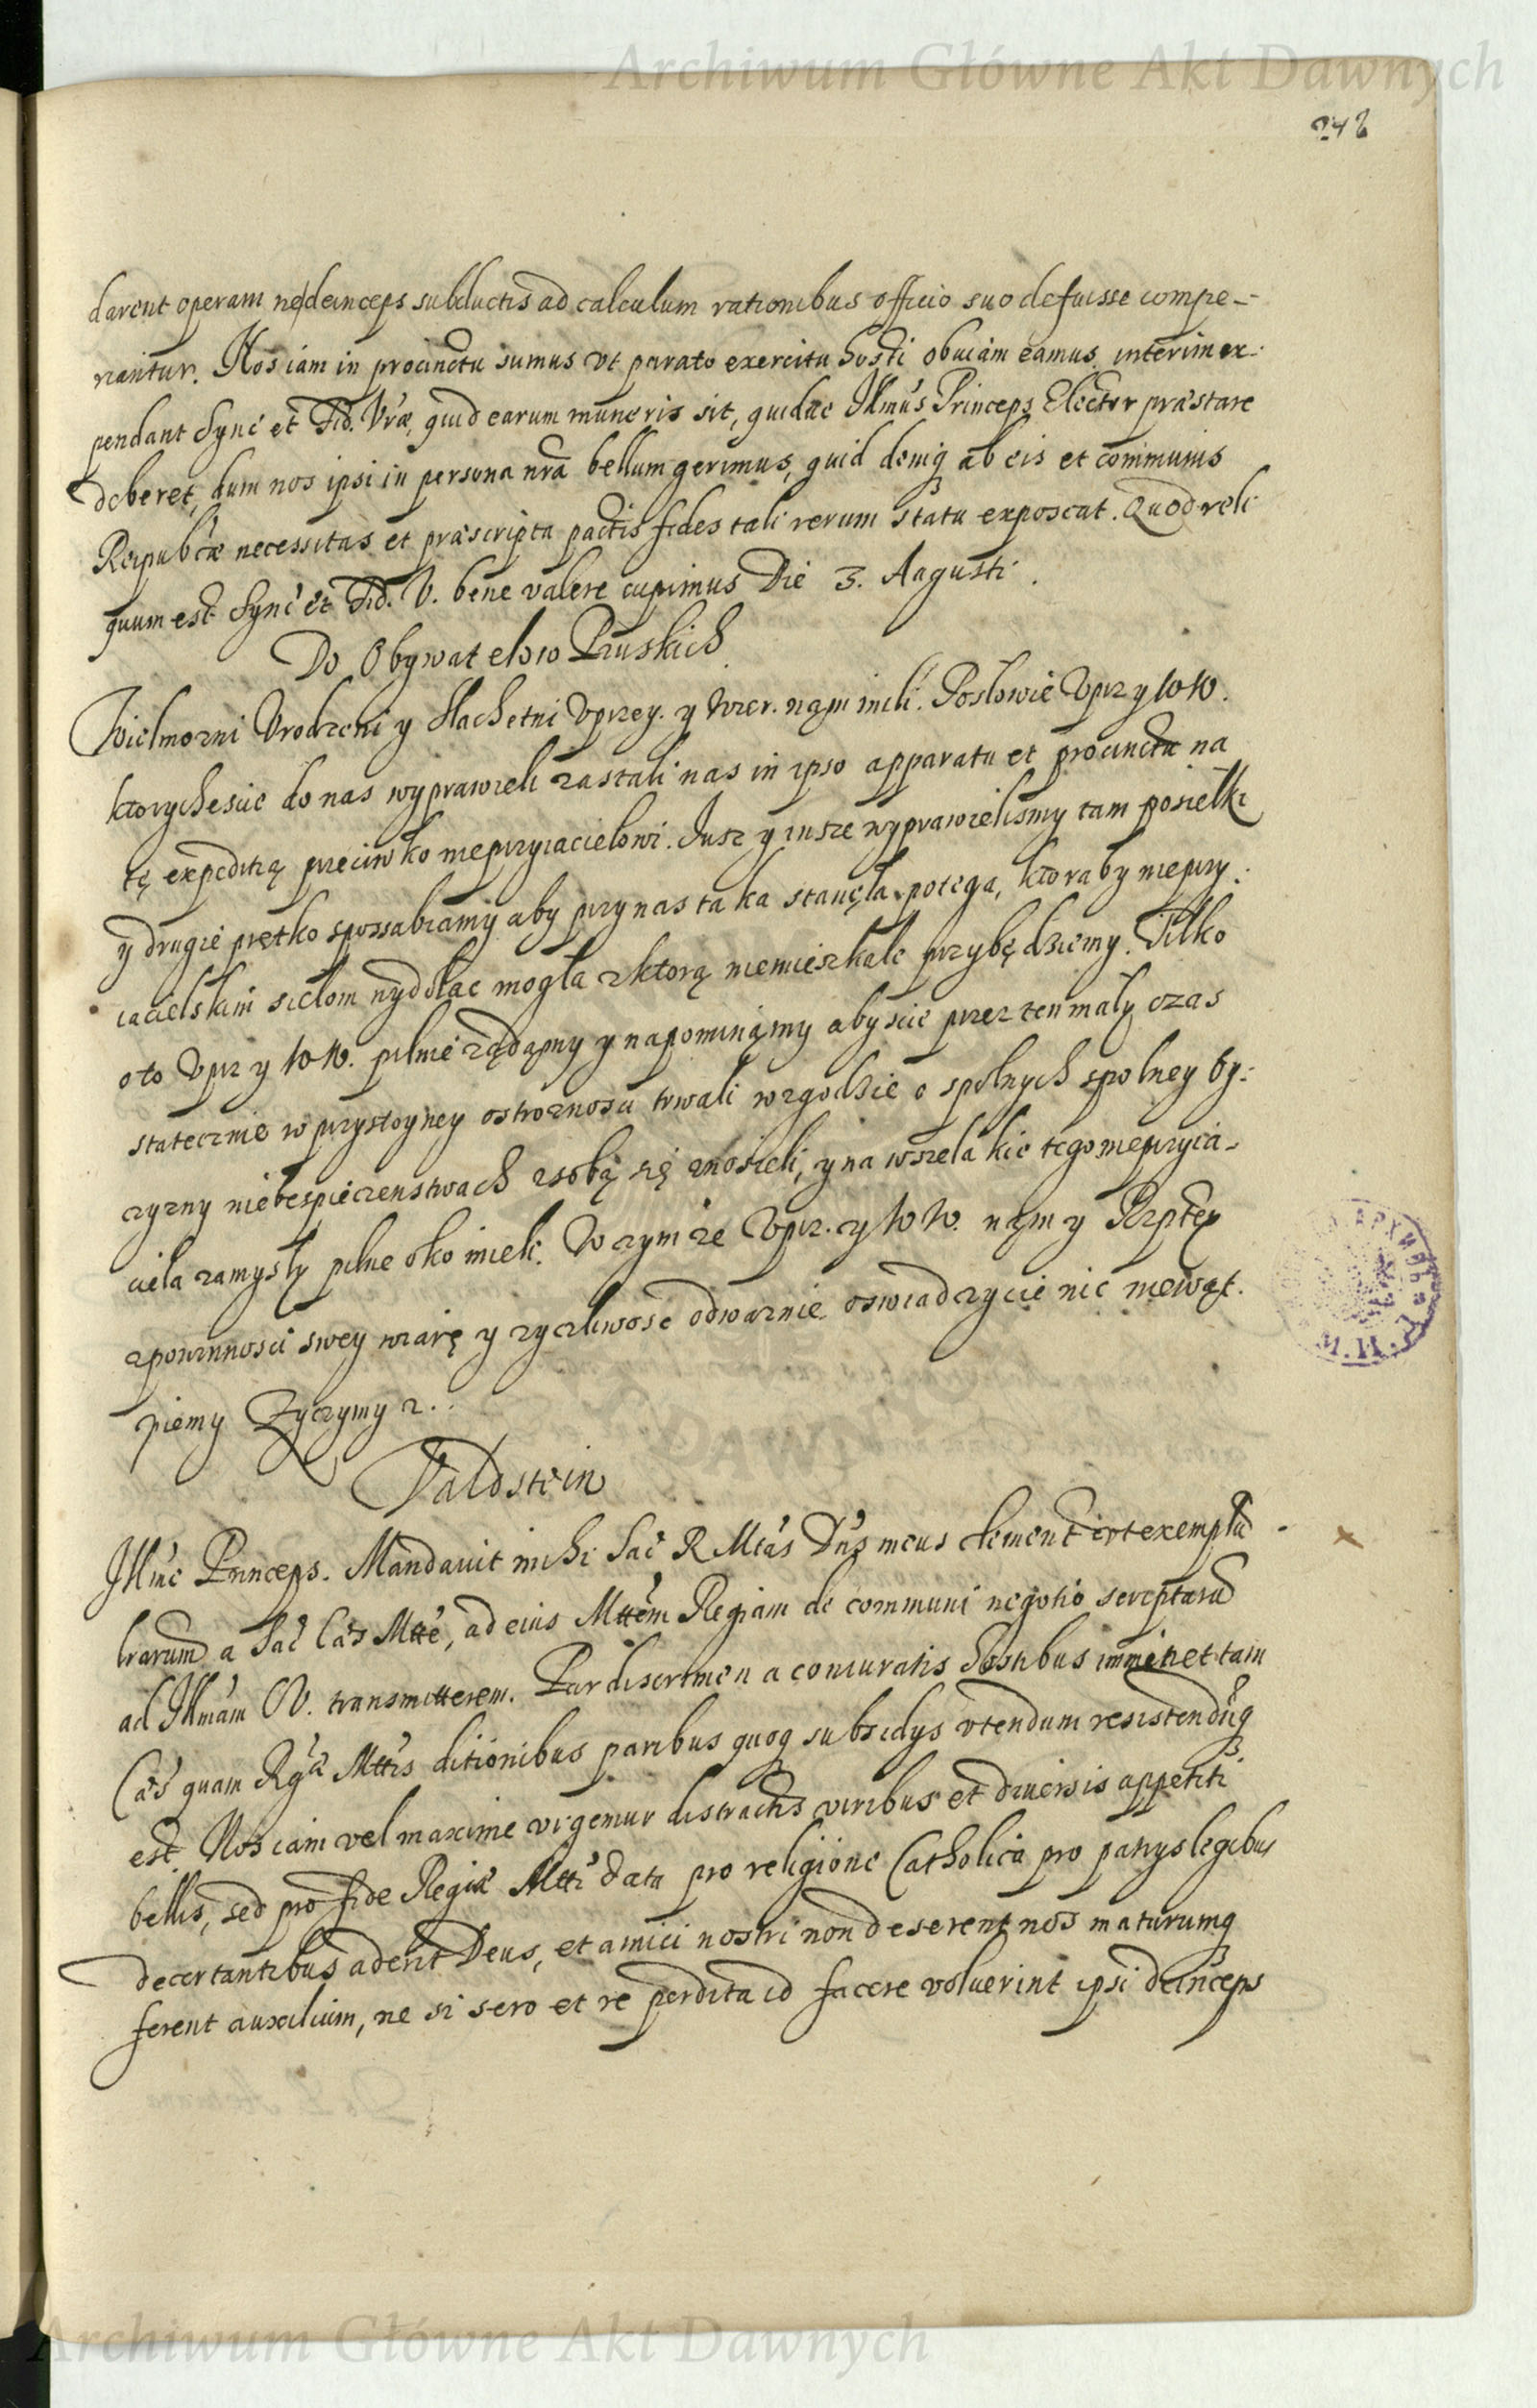 Archiwum Główne Akt Dawnych
248
darent operam ne deinceps subductis ad calculum rationibus officio suo defuisse compe-
riantur. Nos iam in procinctu sumus ut parato exercitu hosti obuiam eamus. interim ex-
pendant Sync et Fid. Vræ, quid earum muneris sit, quidue Illmus Princeps Elector præstare
deberet, dum nos ipsi in persona nrã bellum gerimus, quid deniq ab eis et communis
Reipublcæ necessitas et præscripta pactis fides tali rerum statu exposcat. Quod reli
quum est Sync et Fid. V. bene valere cupimus Die 3. Augusti.
Do Obywatelow Pruskich
Wielmozni Vrodzeni y Slachetni Vprzey. y Wier. nam mili. Posłowie Vprz y WW.
ktorychescie do nas wyprawieli zastali nas in ipso apparatu et procinctu na
tę expeditią przeciwko nieprzyiacielowi. Iusz y insze wyprawielismy tam posielki
y drugie prętko sposabiamy aby przy nas taka stanęła potęga, ktoraby nieprzy-
iacielskim siełom wydołac mogła z ktorą niemieszkale przybędziemy. Tilko
oto Vprz y WW. pilnie ządamy y napominamy abyscie przez ten mały czas
statecznie w przystoyney ostroznosci trwali w zgodzie o spolnych spolney oy-
czyzny niebespieczenstwach z sobą się znosieli, y na wszelakie tego nieprzyia-
ciela zamysły pilne oko mieli. W czym ze Vprz. y WW. nam y Rzptey
z powinnosci swey wiarę y zyczliwosc odwaznie oswiadczycie nic niewąt-
piemy Zyczymy z..
Valdstein
Illme Princeps. Mandauit mihi Sac R Mtas Dns meus clement ut exemplu
lrarum a Sac Caes Mtte, ad eius Mttem Regiam de communi negotio scriptaru
ad Illmam V. transmitterem. Par discrimen a coniuratis hostibus imminet tam
Caes quam Rgæ Mttis ditionibus paribus quoq subsidys utendum resistenduq
est. Nos iam vel maxime urgemur distractis viribus et diuersis appetiti
bellis, sed pro fide Regiæ Mtti data pro religione Catholica pro patrys legibus
decertantibus aderit Deus, et amici nostri non deserent nos maturumq
ferent auxilium, ne si sero et re perdita id facere voluerint ipsi deinceps
Archiwum Główne Akt Dawnych